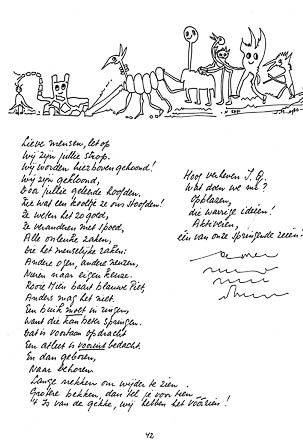 Lieve mensen, let op
Wij zijn jullie strop.
Wij worden hierboven gehoond!
Wij zijn gekloond,
Door jullie geleende hoofden,
Zie wat een ze ons hoofden!
Ze weten het zo goed,
Ze veranderen met spoed,
Alle ontelbte zaken,
Die het menselijke raken:
Andere ogen, andere neuzen,
Nieren naar eigen keuze.
Rooie Mien baart blauwe Piet,
Anders mag het niet.
Een buik moet in ringen,
want die kan beter springen.
Dat is voortaan opdracht
Een atleet is vooruit bedacht.
En dan geboren,
Naar behoren.
Lange nekken om wijder te zien.
Grotere bekken, dan tel je voor tien.
't Is van de gekke, wij hebben het voorzien!
Hoog verheven I.Q.
Wat doen we nu?
Opblazen,
die warrige ideeën!
Aktiveren,
één van onze springende zeeën?
42